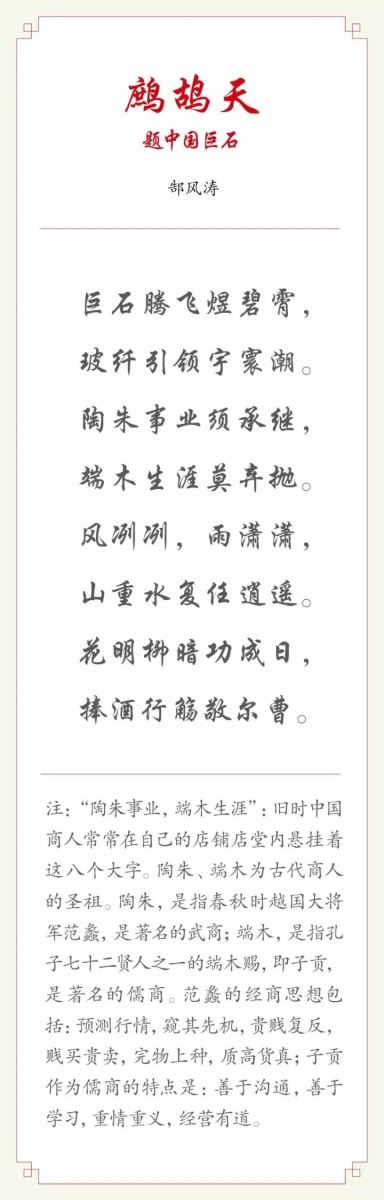 鹧鸪天
题中国巨石
郜风涛
巨石腾飞煜碧霄，
玻纤引领宇寰潮。
陶朱事业须承继，
端木生涯莫弃抛。
风冽冽，雨潇潇，
山重水复任逍遥。
花明柳暗功成日，
捧酒行觞敬尔曹。
注：“陶朱事业，端木生涯”：旧时中国
商人常常在自己的店铺店堂内悬挂着
这八个大字。陶朱、端木为古代商人
的圣祖。陶朱，是指春秋时越国大将
军范蠡，是著名的武商；端木，是指孔
子七十二贤人之一的端木赐，即子贡，
是著名的儒商。范蠡的经商思想包
括：预测行情，窥其先机，贵贱复反，
贱买贵卖，完物上种，质高货真；子贡
作为儒商的特点是：善于沟通，善于
学习，重情重义，经营有道。